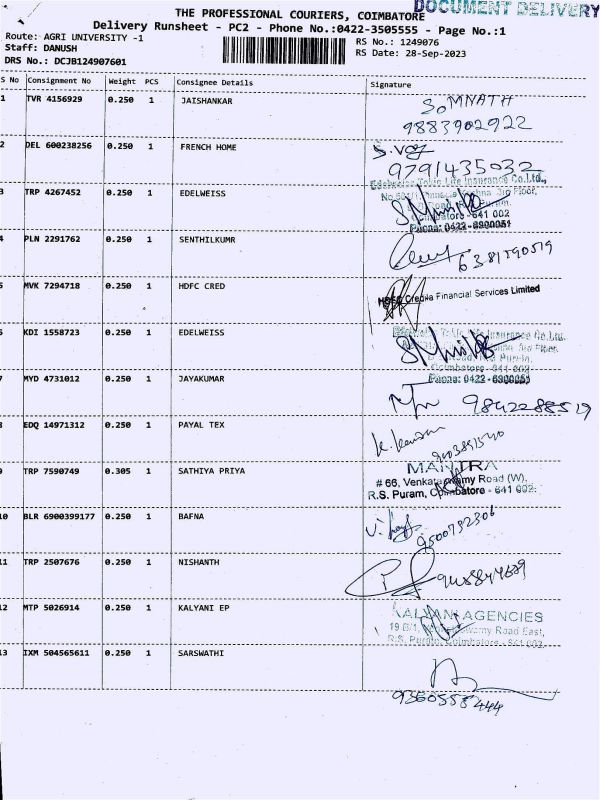 DOCUMENT DELIVERY
THE PROFESSIONAL COURIERS, COIMBATORE
Delivery Runsheet - PC2 - Phone No.:0422-3505555 - Page No.:1
Route: AGRI UNIVERSITY -1
RS No.: 1249076
Staff: DANUSH
RS Date: 28-Sep-2023
DRS No.: DCJB124907601
S No Consignment No Weight PCS Consignee Details Signature
1 TVR 4156929 0.250 1 JAISHANKAR SOMNATH
9883902922
2 DEL 600238256 0.250 1 FRENCH HOME
9791435032
3 TRP 4267452 0.250 1 EDELWEISS Edelweiss Tokio Life Insurance Co.Ltd.,
Coimbatore - 641 002
Phone: 0422-6900051
4 PLN 2291762 0.250 1 SENTHILKUMR
6381590519
5 MVK 7294718 0.250 1 HDFC CRED HDFC Credila Financial Services Limited
6 KDI 1558723 0.250 1 EDELWEISS Edelweiss Tokio Life Insurance Co.Ltd.
Coimbatore - 641 002
Phone: 0422-6900051
7 MYD 4731012 0.250 1 JAYAKUMAR
9842288519
8 EDQ 14971312 0.250 1 PAYAL TEX
9 TRP 7590749 0.305 1 SATHIYA PRIYA MANTRA
# 66, Venkataswamy Road (W),
R.S. Puram, Coimbatore - 641 002.
10 BLR 6900399177 0.250 1 BAFNA
9500732306
11 TRP 2507676 0.250 1 NISHANTH
12 MTP 5026914 0.250 1 KALYANI EP KALYANI AGENCIES
Road East,
R.S. Puram, Coimbatore - 641 002
13 IXM 504565611 0.250 1 SARSWATHI